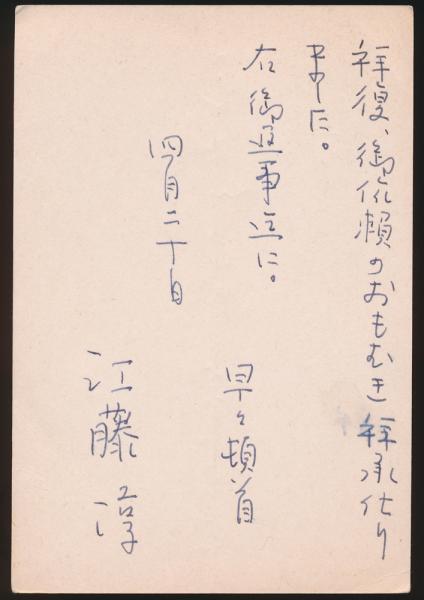 拝復、御依頼のおもむき拝承仕り
ました。
右御返事迄に。
早々頓首
四月二十日
江藤淳